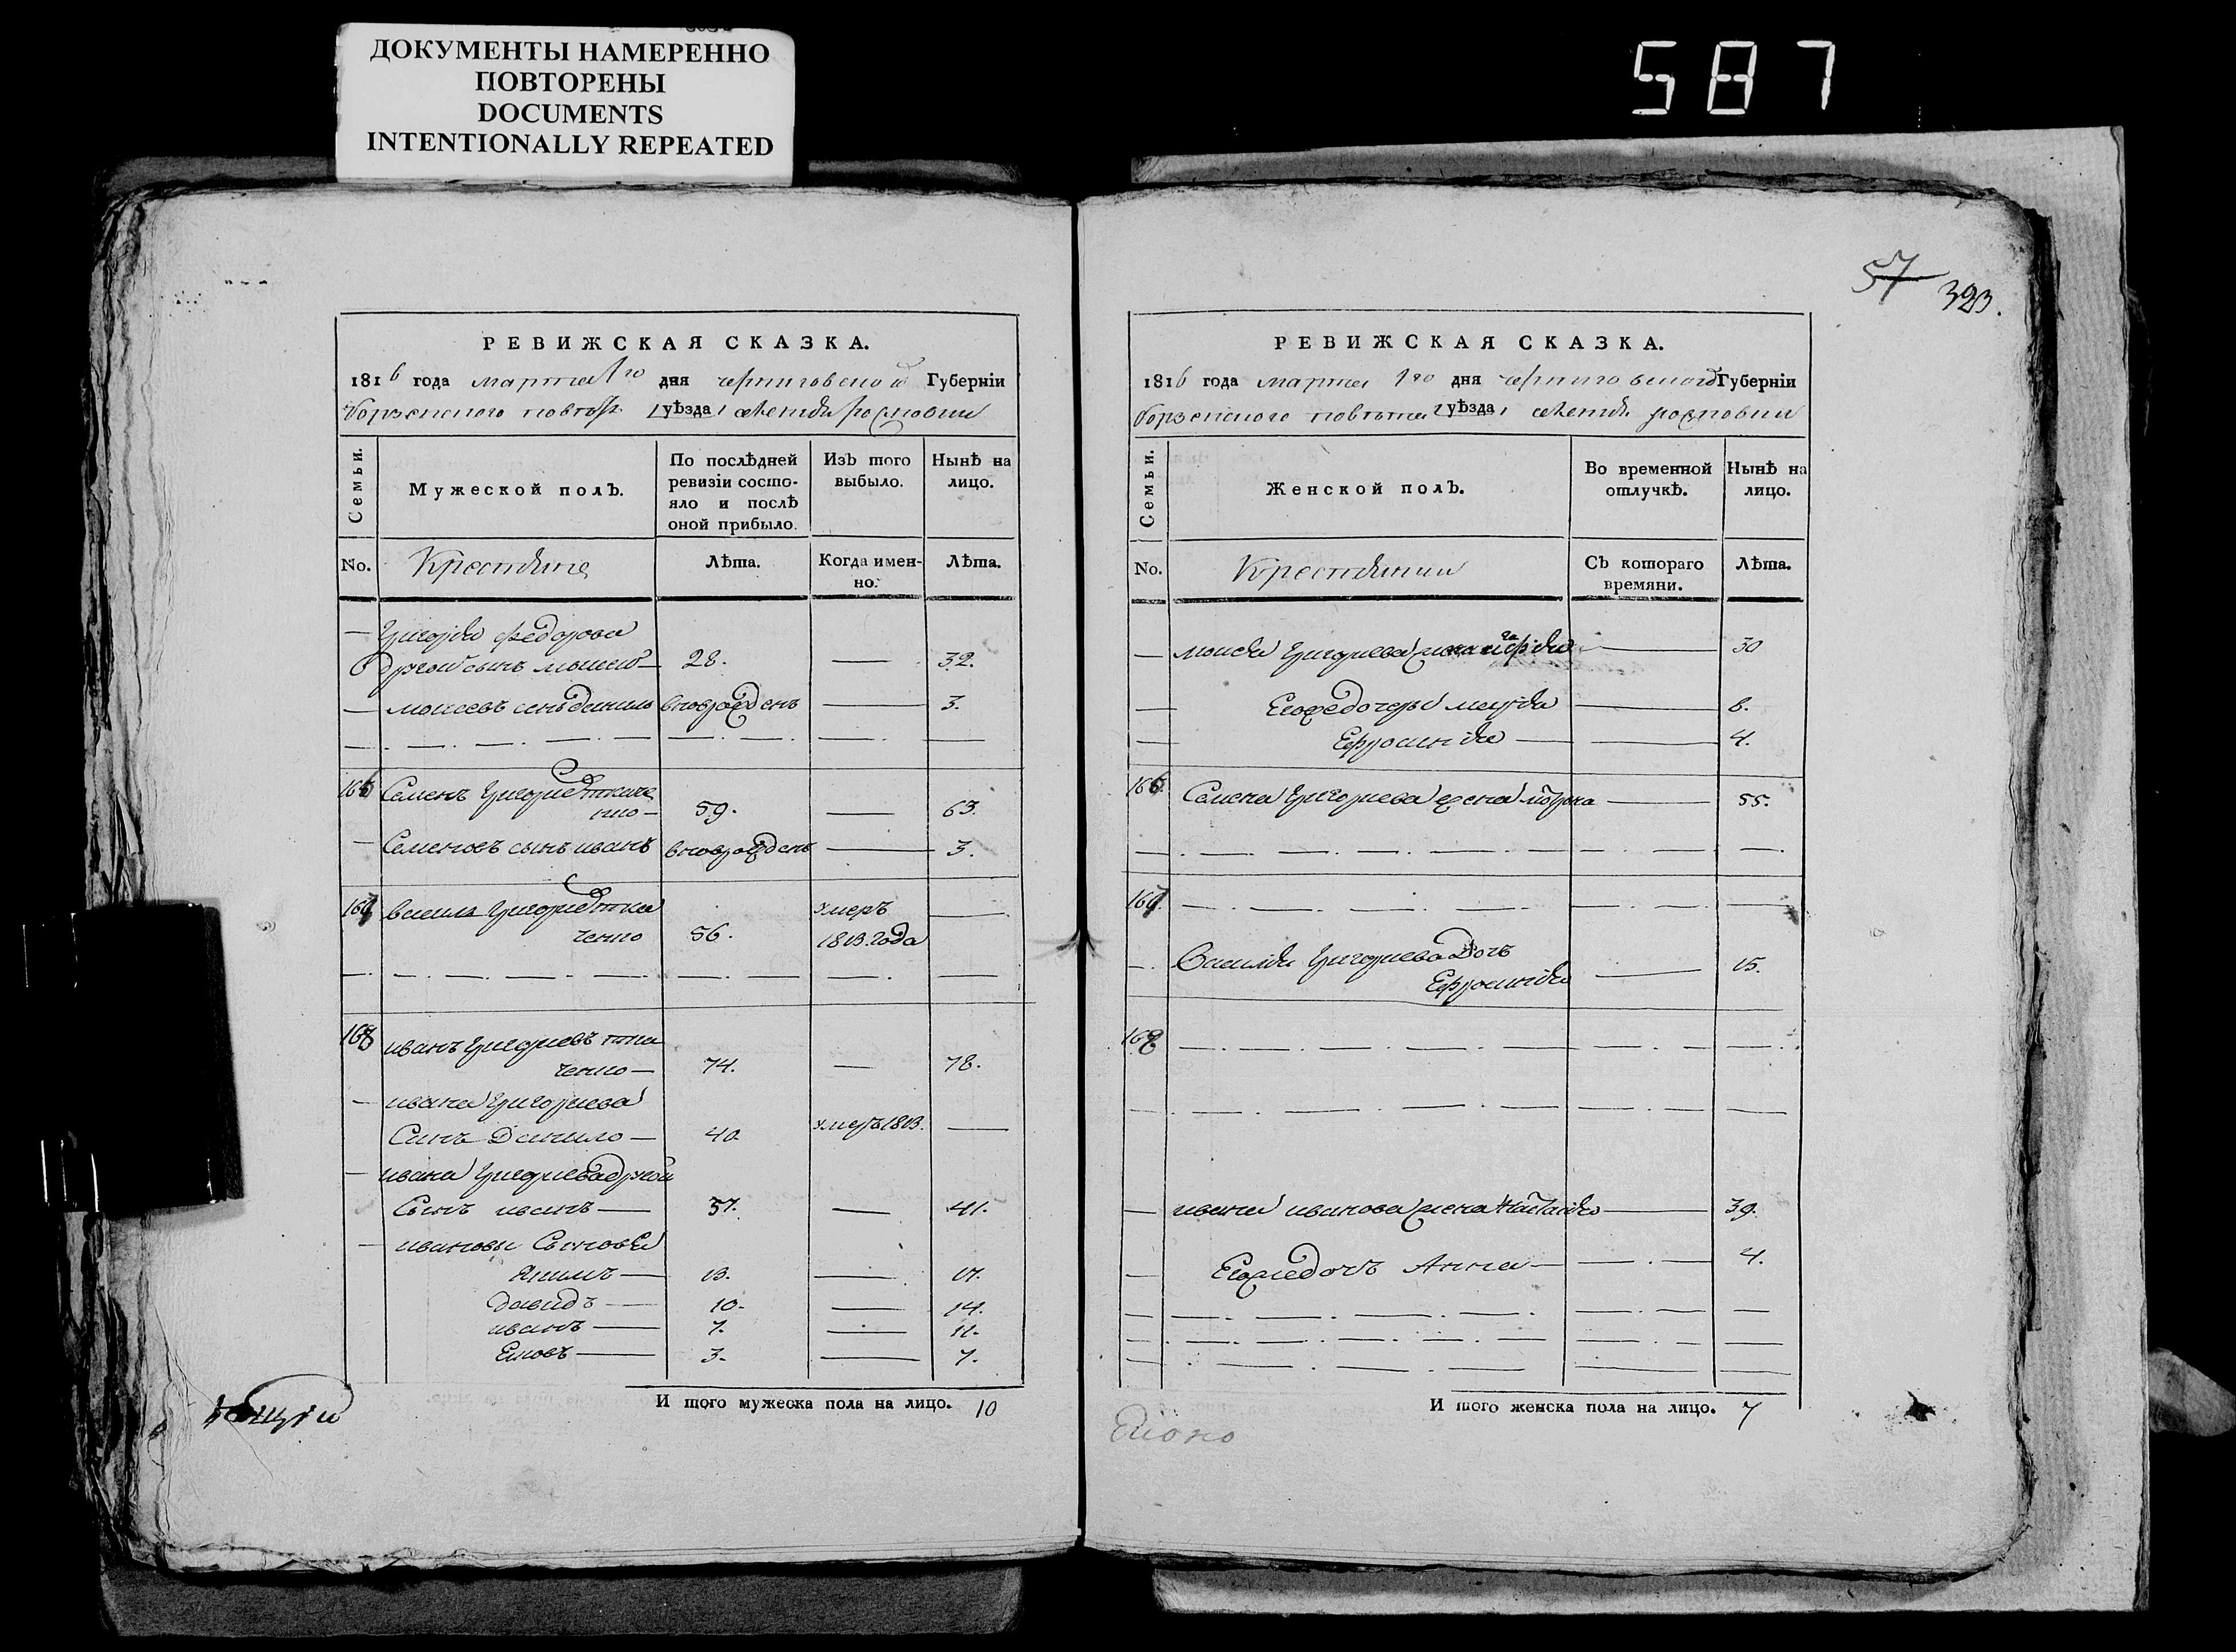 ДОКУМЕНТЫ НАМЕРЕННО
ПОВТОРЕНЫ
DOCUMENTS
INTENTIONALLY REPEATED
587
РЕВИЖСКАЯ СКАЗКА.
1816 года марта 1го дня черниговской Губерніи
Борзенского повѣта уѣзда
Семьи.
Мужеской полъ.
По послѣдней ревизіи состо-
яло и послѣ
оной прибыло.
Изъ того выбыло.
Нынѣ на лицо.
No.
Крестьяне
Лѣта.
Когда имен-
но.
Лѣта.
— Григорія федорова
другой сынъ моисей — 28. — 32.
— моисеевъ синъ данило вноврожденъ — 3.
166 Семенъ Григориевъ ткаче
нко — 59. — 63.
— Семеновъ сынъ иванъ вноврожденъ — 3.
167 василь Григориевъ тка
ченко 56. умеръ 1813. года —
168 иванъ Григориевъ тка
ченко — 74. — 78.
— ивана Григориева
Синъ Данило — 40 умеръ 1813. —
— ивана Григориева другой
Сынъ иванъ — 37. — 41.
— ивановы Сыновья
Якимъ — 13. — 17.
давидъ — 10. — 14.
иванъ — 7. — 11.
Яковъ — 3. — 7.
И того мужеска пола на лицо. 10
57
323.
РЕВИЖСКАЯ СКАЗКА.
1816 года марта 1го дня черниговской Губерніи
Борзенского повѣта уѣзда
Семьи.
Женской полъ.
Во временной
отлучкѣ.
Нынѣ на
лицо.
No.
Крестьянки
Съ котораго
времяни.
Лѣта.
— моисея Григориева жена — 30
Егожедочеры марія — 8.
Ефросинія — 4.
166 Семена Григориева жена — 55.
167.
— Василія Григориева Дочь
Ефросинія — 15.
168
— ивана иванова жена Настасія — 39.
— Егожедочъ Анна — 4.
И того женска пола на лицо. 7